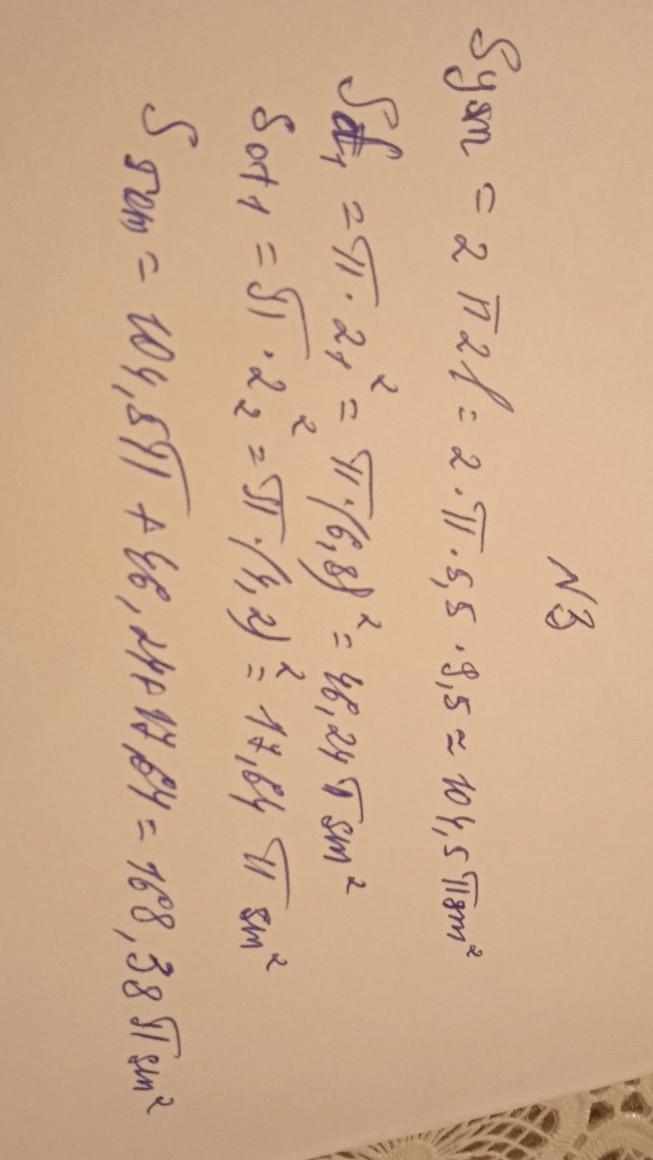 N3
Syan = 2πrl = 2·π·5,5·9,5 ≈ 104,5π sm²
Sot₁ = π·r₁² = π·(6,8)² = 46,24π sm²
Sot₁ = π·r₂² = π·(4,2)² = 17,64 π sm²
Stam = 104,5π + 46,24+17,64 = 168,38π sm²